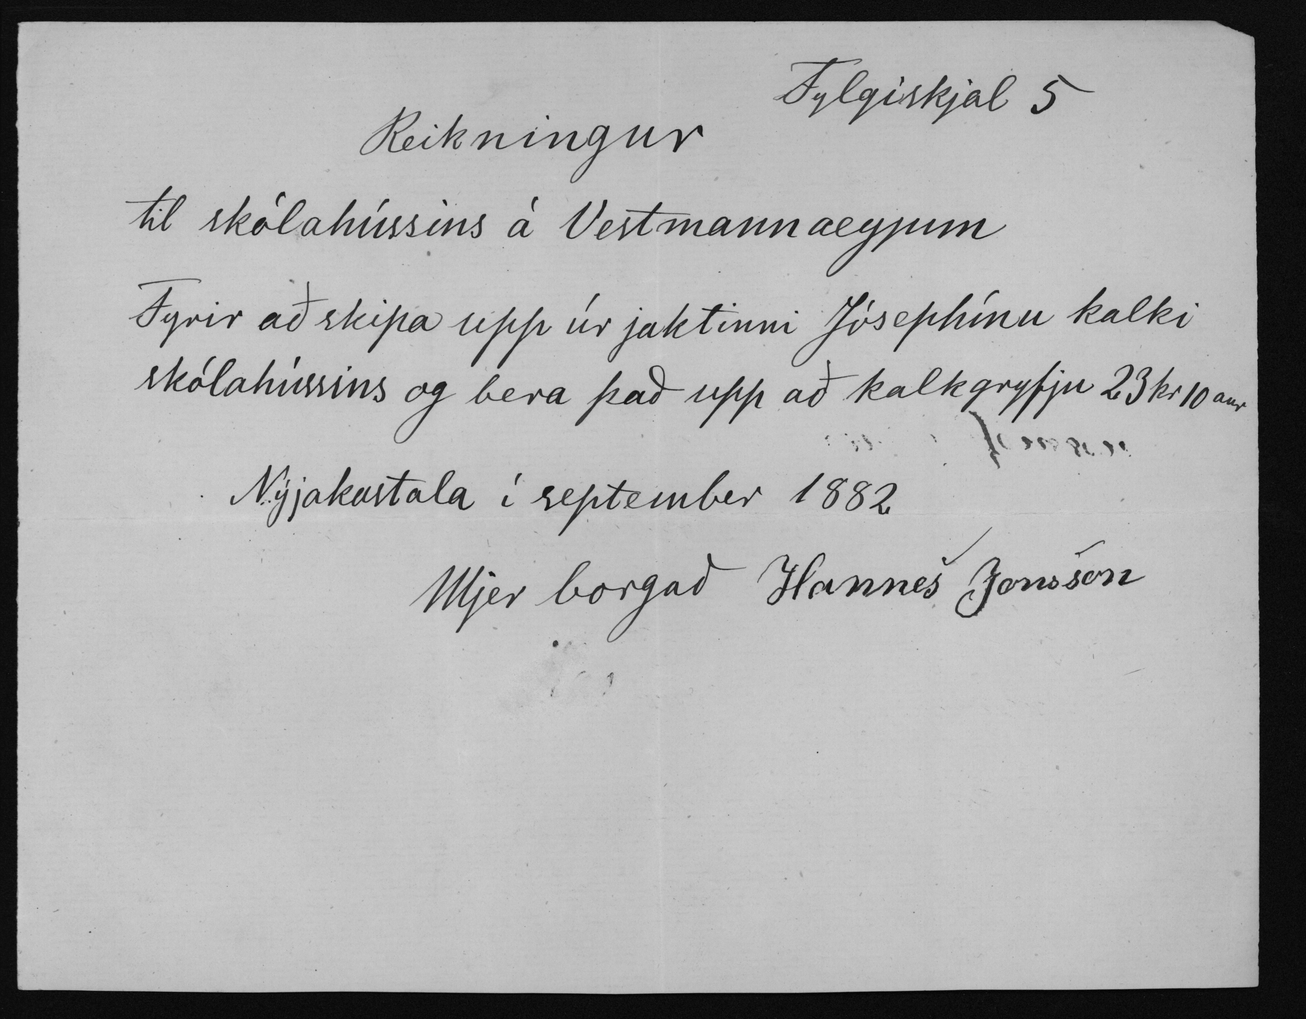 Fylgiskjal 5
Reikningur
til skólahússins á Vestmannaeyjum
Fyrir að skipa upp úr jaktinni Jósephínu kalki
skólahússins og bera það upp að kalkgryfju 23 kr 10 aur
Nýjakastala í september 1882
Mjer borgað Hannes Jonsson